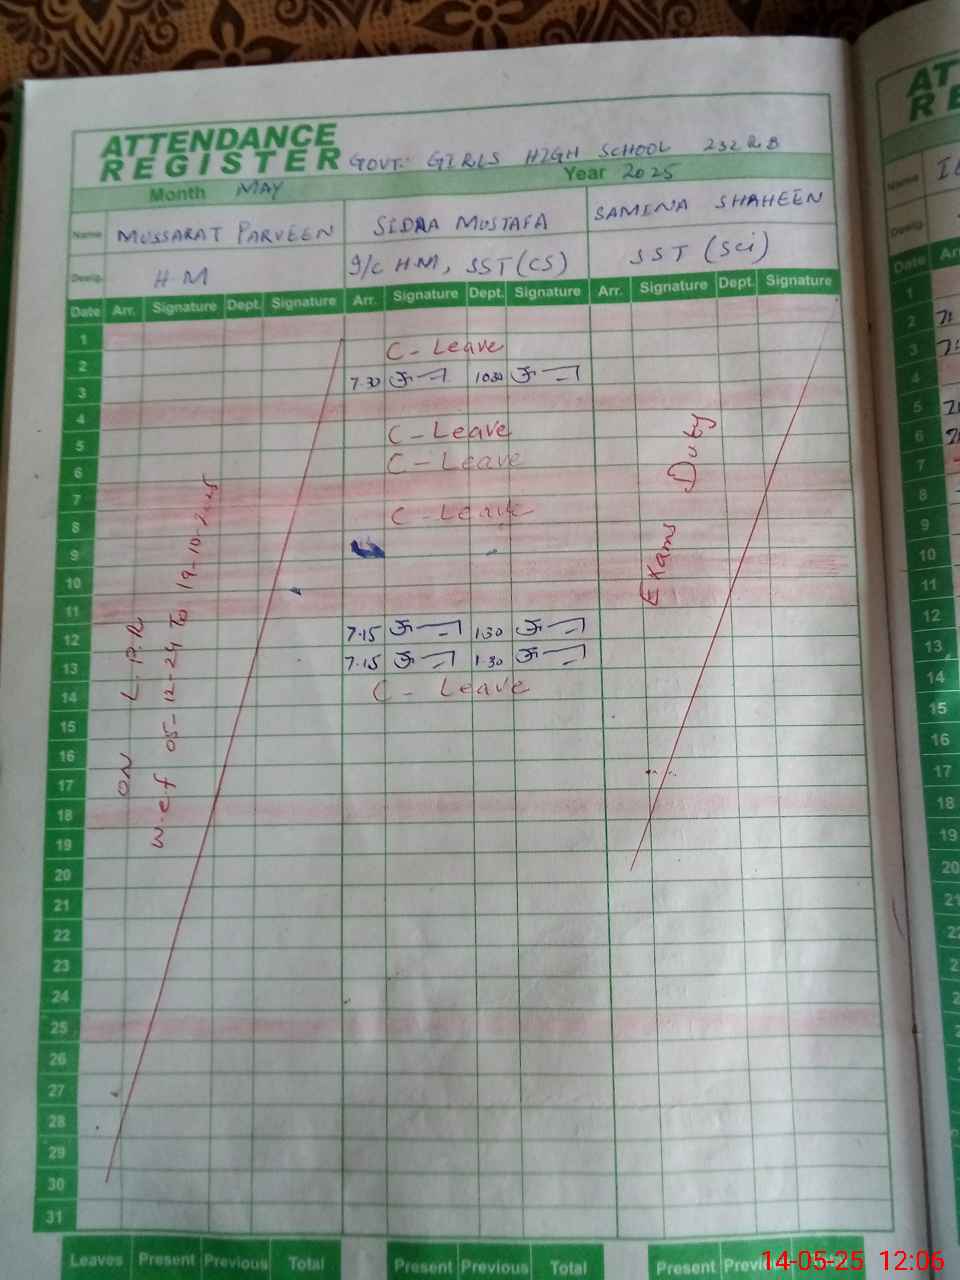 ATTENDANCE
REGISTER GOVT. GIRLS HIGH SCHOOL 232 R B
Month MAY Year 2025
Name MUSSARAT PARVEEN SIDRA MUSTAFA SAMINA SHAHEEN
Desig. H.M I/C H.M, SST(CS) SST (Sci)
Date Arr. Signature Dept. Signature Arr. Signature Dept. Signature Arr. Signature Dept. Signature
1
2 C - Leave
3 7.30 10.30
4
5 C - Leave
6 C - Leave
7
8 C - Leave
9
10
11
12 7.15 1.30
13 7.15 1.30
14 C - Leave
15
16
17
18
19
20
21
22
23
24
25
26
27
28
29
30
31
ON L.P.R
w.e.f 05-12-24 To 19-10-2025
Exams Duty
Leaves Present Previous Total Present Previous Total Present
ATT
RE
Name
Desig.
Date Arr
1
2
3
4
5
6
7
8
9
10
11
12
13
14
15
16
17
18
19
20
21
14-05-25 12:06